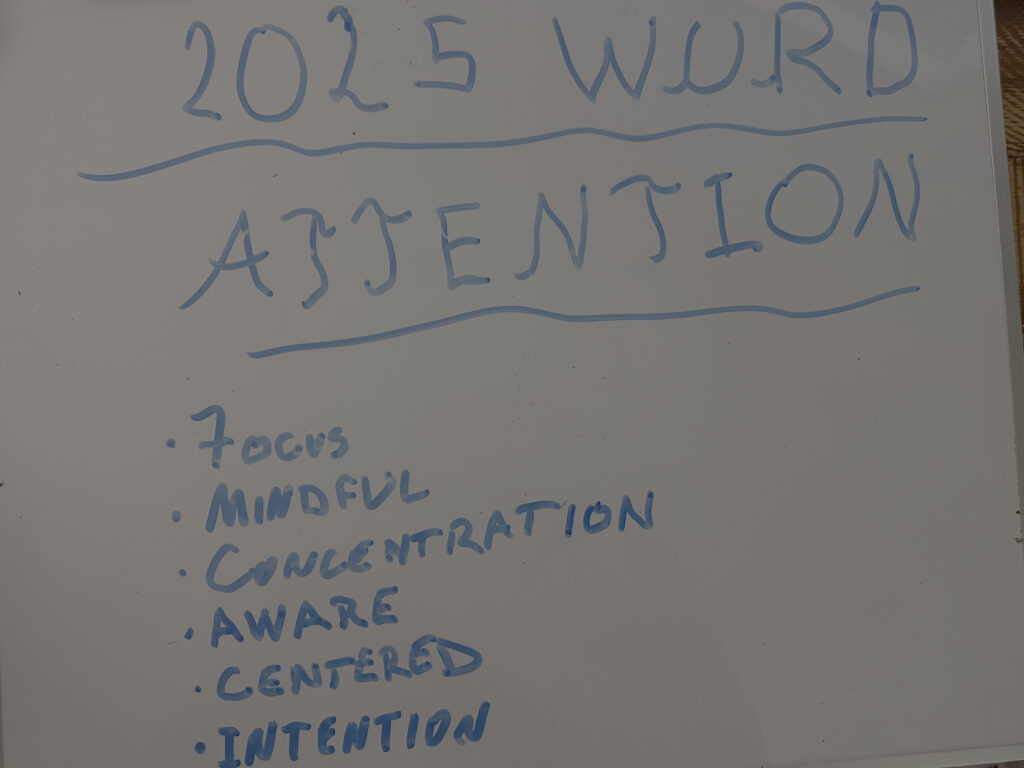 2025 WORD
ATTENTION
• Focus
• MINDFUL
• CONCENTRATION
• AWARE
• CENTERED
• INTENTION